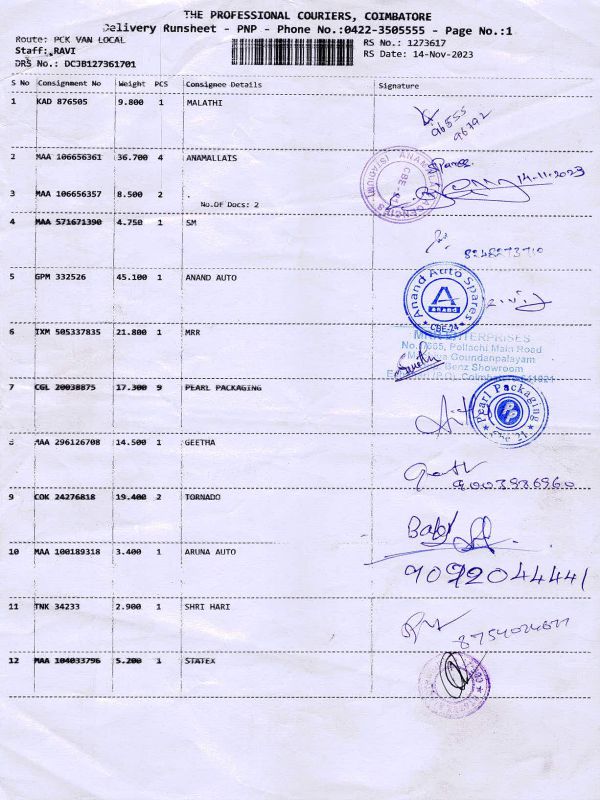 THE PROFESSIONAL COURIERS, COIMBATORE
Delivery Runsheet - PNP - Phone No.:0422-3505555 - Page No.:1
Route: PCK VAN LOCAL
RS No.: 1273617
Staff: RAVI
RS Date: 14-Nov-2023
DRS No.: DCJB127361701
S No Consignment No Weight PCS Consignee Details Signature
1 KAD 876505 9.800 1 MALATHI
96555
96792
2 MAA 106656361 36.700 4 ANAMALLAIS
14.11.2023
3 MAA 106656357 8.500 2 .
No.Of Docs: 2
4 MAA 571671390 4.750 1 SM
5 GPM 332526 45.100 1 ANAND AUTO
Anand Auto Spares
A
ANAND
CBE-24
6 IXM 505337835 21.800 1 MRR
ENTERPRISES
Pollachi Main Road
Goundanpalayam
Benz Showroom
7 CGL 20038875 17.300 9 PEARL PACKAGING
Pearl Packaging
PP
Cbe 21
8 MAA 296126708 14.500 1 GEETHA
9003936960
9 COK 24276818 19.400 2 TORNADO
10 MAA 100189318 3.400 1 ARUNA AUTO
9092044441
11 TNK 34233 2.900 1 SHRI HARI
12 MAA 104033796 5.200 1 STATEX